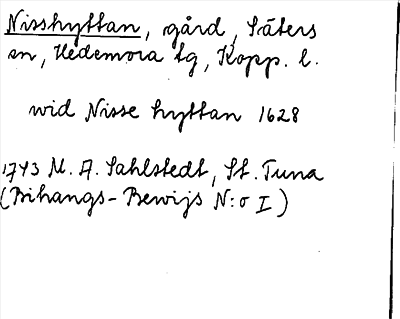 Nisshyttan, gård, Säters
sn, Hedemora tg, Kopp. l.
wid Nisse hyttan 1628
1743 M. A. Sahlstedt, St. Tuna
(Bihangs-Bewijs N:o I)